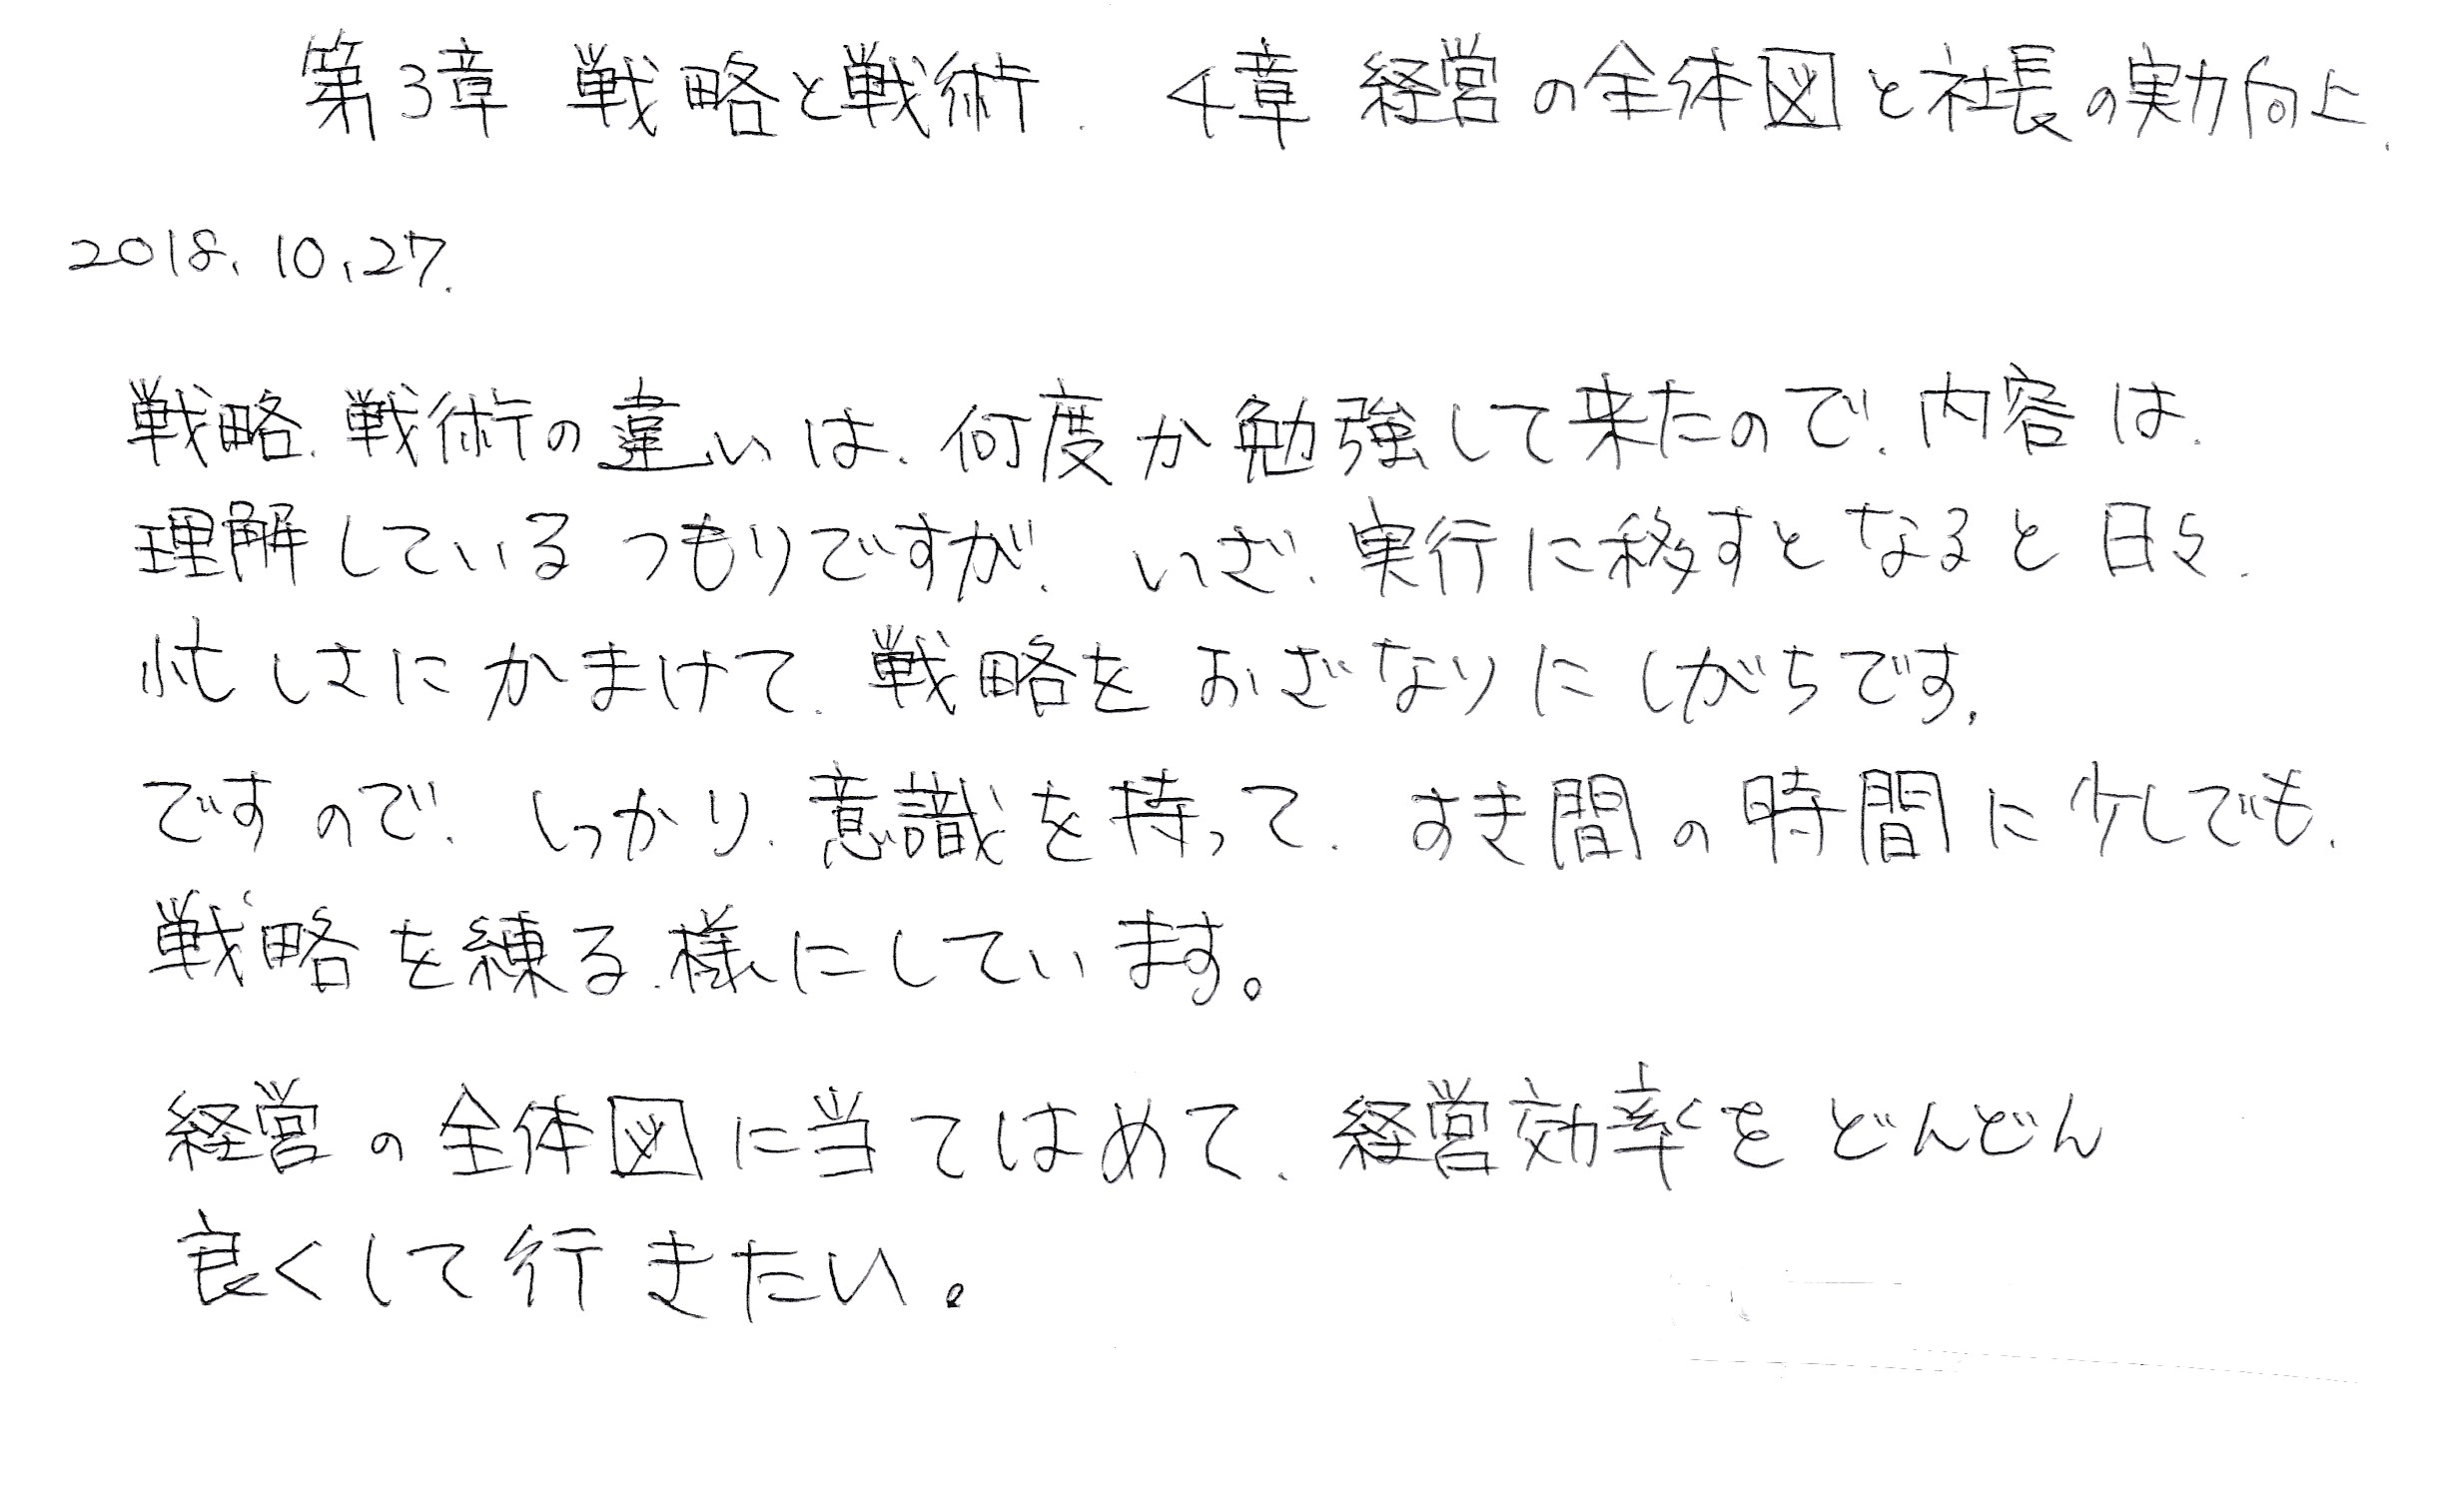 第3章 戦略と戦術. 4章 経営の全体図と社長の実力向上.
2018.10.27.
戦略.戦術の違いは.何度か勉強して来たので.内容は.
理解しているつもりですが.いざ.実行に移すとなると日々.
忙しさにかまけて.戦略をおざなりにしがちです.
ですので.しっかり.意識を持って.すき間の時間に少しでも.
戦略を練る.様にしています。
経営の全体図に当てはめて.経営効率をどんどん
良くして行きたい。